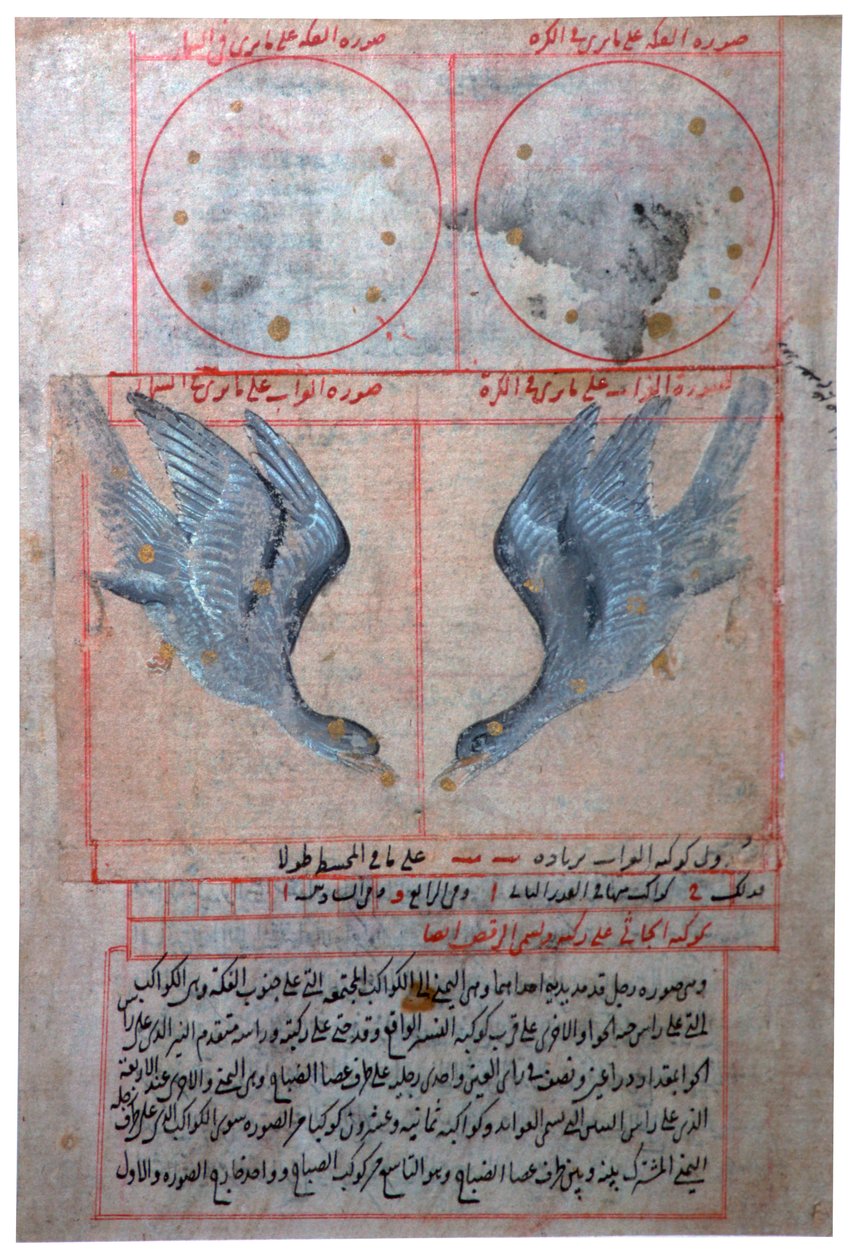 صورة الفكه على ما يرى فى الكره
صوره الفكه على ما يرى فى السما
صورة الغراب على ما يرى فى الكرة
صوره الغراب على ما يرى فى السما
كوكبه الغراب بزياده على ما فى المجسطى طولا
فى القدر الثالث ا وفى الرابع و فى السادس ا
كوكبه الجاثى على ركبتيه ويسمى الراقص ايضا
وهى صوره رجل قد مد يديه احداهما وهى اليمنى الى الكواكب المجتمعه التى على جنوب الفكه وهى الكواكب
التى على راس حيه الحوا والاخرى على قرب كوكبه النسر الواقع وقد جثى على ركبتيه وراسه متقدم النير الذى على راس
الحوا بمقدار ذراعين ونصف فى راى العين واحدى رجليه على طرف عصا الضباح وهى اليمنى والاخرى عند الاربعة
التى على راس التنين التى تسمى العوايد وكواكبه ثمانيه وعشرون كوكبا من الصوره سوى الكواكب الذى على طرف رجله
اليمنى المشترك بينه وبين طرف عصا الضباح وهو التاسع من كوكب الضباح وواحد خارج الصوره والاول